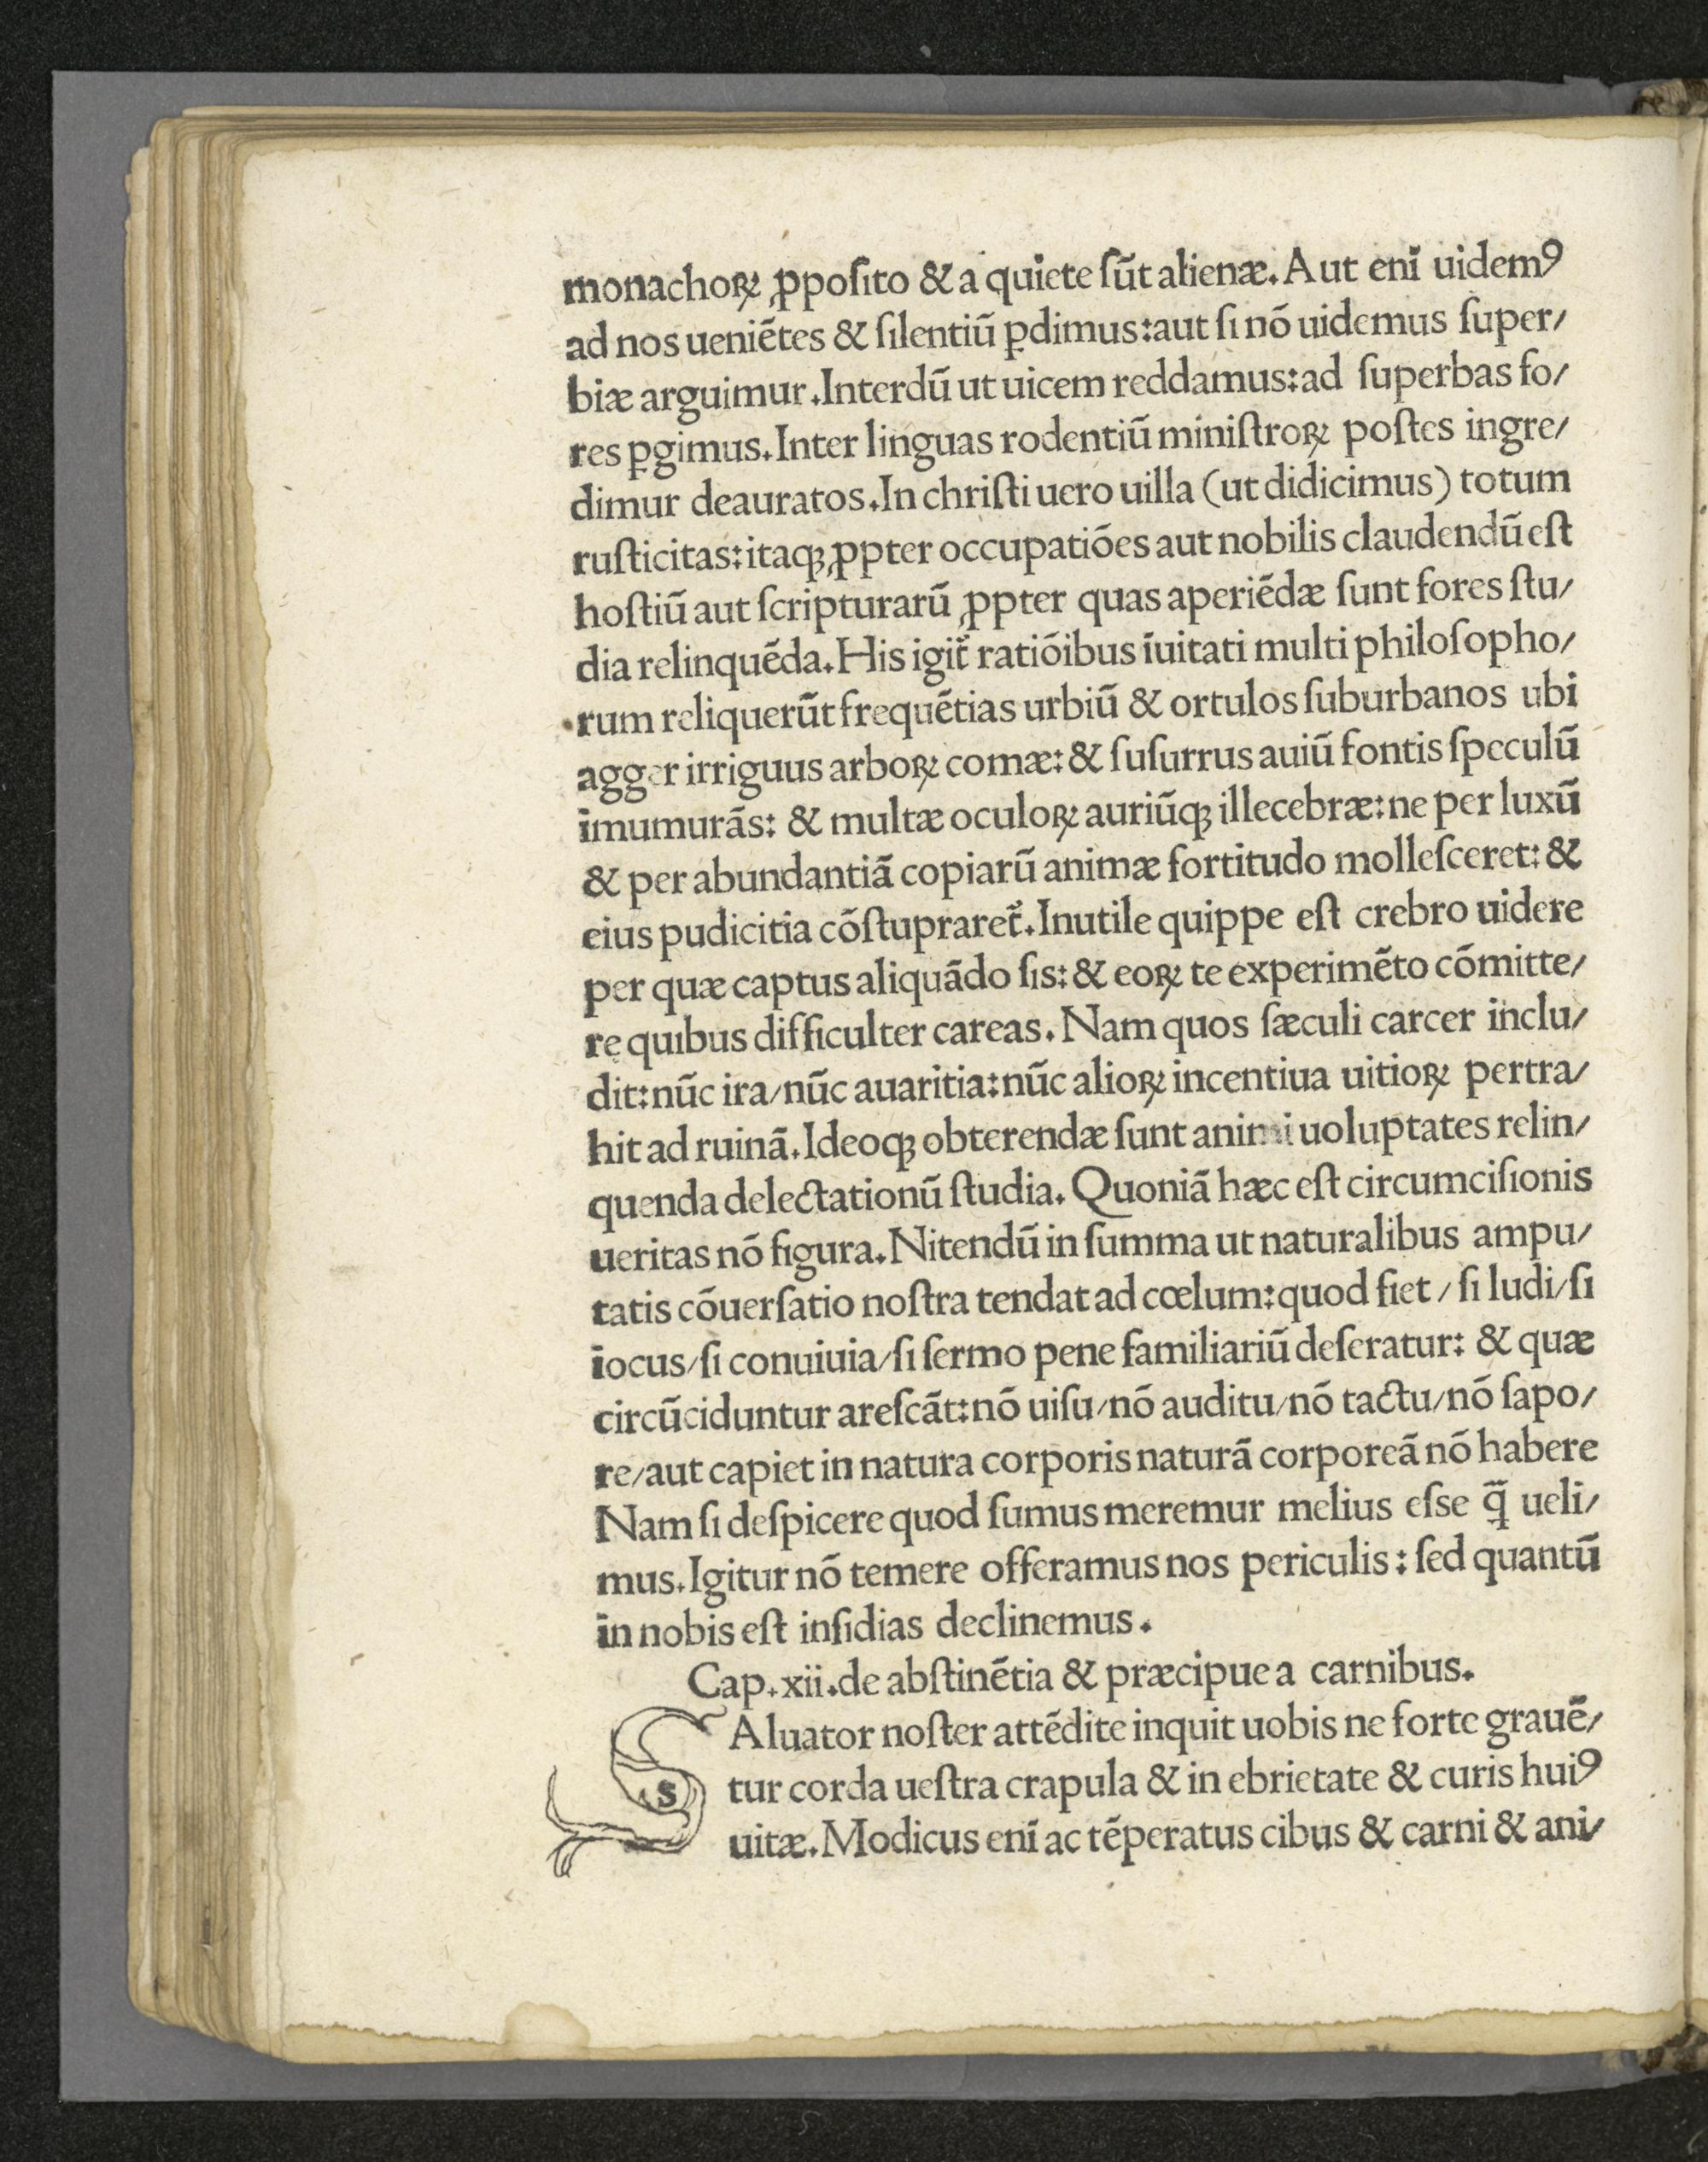 monachoꝝ ꝓpoſito & a quiete ſũt alienæ. Aut enĩ uidemꝰ
ad nos ueniẽtes & ſilentiũ ꝑdimus: aut ſi nõ uidemus ſuper/
biæ arguimur. Interdũ ut uicem reddamus: ad ſuperbas fo/
res ꝑgimus. Inter linguas rodentiũ miniſtroꝝ poſtes ingre/
dimur deauratos. In chriſti uero uilla (ut didicimus) totum
ruſticitas: itaqꝫ ꝓpter occupatiões aut nobilis claudendũ eſt
hoſtiũ aut ſcripturarũ ꝓpter quas aperiẽdæ ſunt fores ſtu/
dia relinquẽda. His igit̃ ratiõibus ĩuitati multi philoſopho/
rum reliquerũt frequẽtias urbiũ & ortulos ſuburbanos ubi
agger irriguus arboꝝ comæ: & ſuſurrus auiũ fontis ſpeculũ
imumurãs: & multæ oculoꝝ auriũqꝫ illecebræ: ne per luxũ
& per abundantiã copiarũ animæ fortitudo molleſceret: &
eius pudicitia cõſtupraret̃. Inutile quippe eſt crebro uidere
per quæ captus aliquãdo ſis: & eoꝝ te experimẽto cõmitte/
re quibus difficulter careas. Nam quos ſæculi carcer inclu/
dit: nũc ira/nũc auaritia: nũc alioꝝ incentiua uitioꝝ pertra/
hit ad ruinã. Ideoqꝫ obterendæ ſunt animi uoluptates relin/
quenda delectationũ ſtudia. Quoniã hæc eſt circumciſionis
ueritas nõ figura. Nitendũ in ſumma ut naturalibus ampu/
tatis cõuerſatio noſtra tendat ad cœlum: quod fiet / ſi ludi/ſi
iocus/ſi conuiuia/ſi ſermo pene familiariũ deſeratur: & quæ
circũciduntur areſcãt: nõ uiſu/nõ auditu/nõ tactu/nõ ſapo/
re/aut capiet in natura corporis naturã corporeã nõ habere
Nam ſi deſpicere quod ſumus meremur melius eſse ꝙ̃ ueli/
mus. Igitur nõ temere offeramus nos periculis: ſed quantũ
in nobis eſt inſidias declinemus.
Cap. xii. de abſtinẽtia & præcipue a carnibus.
SAluator noſter attẽdite inquit uobis ne forte grauẽ/
tur corda ueſtra crapula & in ebrietate & curis huiꝰ
uitæ. Modicus enĩ ac tẽperatus cibus & carni & ani/